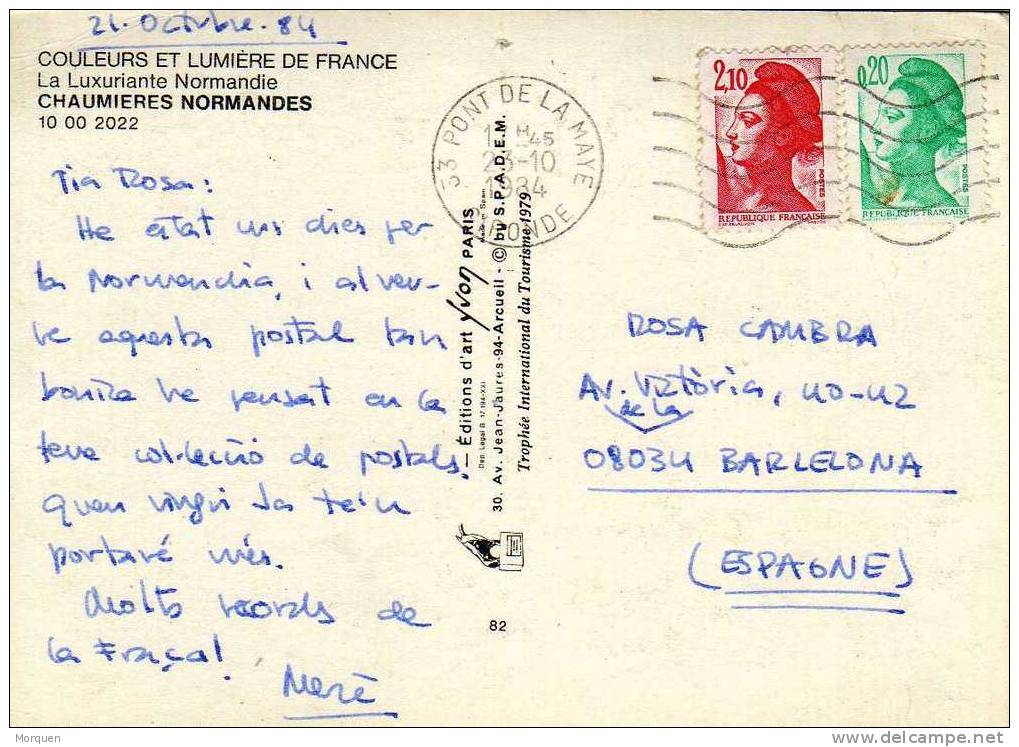 21. Octubre. 84
COULEURS ET LUMIÈRE DE FRANCE
La Luxuriante Normandie
CHAUMIERES NORMANDES
10 00 2022
Tia Rosa:
He estat uns dies per
la Normandia, i al veu-
re aquesta postal tan
bonica he pensat en la
teva col·lecció de postals.
Quan vingui ja te'n
portaré més.
Molts records de
la França!
Mercè
33 PONT DE LA MAYE
45
23-10
1984
GIRONDE
— Éditions d'art yvon PARIS
Made in Spain
Dep. Legal B. 17.194-XXI
30. Av. Jean-Jaures-94-Arcueil - © by S.P.A.D.E.M.
Trophée International du Tourisme 1979
82
2,10
POSTES
REPUBLIQUE FRANÇAISE
0,20
POSTES
REPUBLIQUE FRANÇAISE
ROSA CAMBRA
AV. Victòria, 40-42
de la
08034 BARCELONA
(ESPAGNE)
Morquen
www.delcampe.net